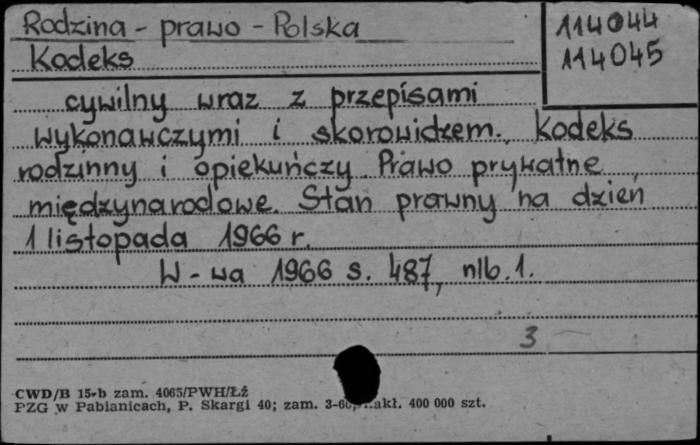 Rodzina - prawo - Polska
114044
114045
Kodeks
cywilny wraz z przepisami
wykonawczymi i skorowidzem. Kodeks
rodzinny i opiekuńczy. Prawo prywatne
międzynarodowe. Stan prawny na dzień
1 listopada 1966 r.
W-wa 1966 s. 487, nlb. 1.
3
CWD/B 15-b zam. 4065/PWH/Łź
PZG w Pabianicach, P. Skargi 40; zam. akł. 400 000 szt.